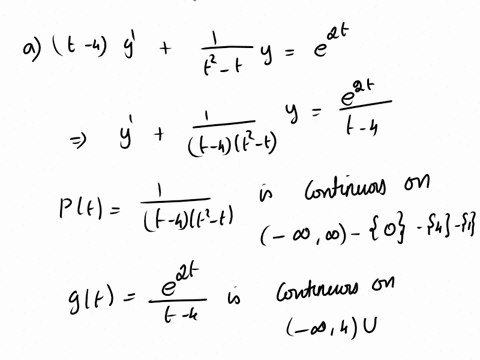 a) (t-4) y' + 1/(t²-t) y = e^2t
⇒ y' + 1/((t-4)(t²-t)) y = e^2t/(t-4)
P(t) = 1/((t-4)(t²-t)) is continuos on
(-∞, ∞) - {0} - {4} - {1}
g(t) = e^2t/(t-4) is continuous on
(-∞, 4) ∪